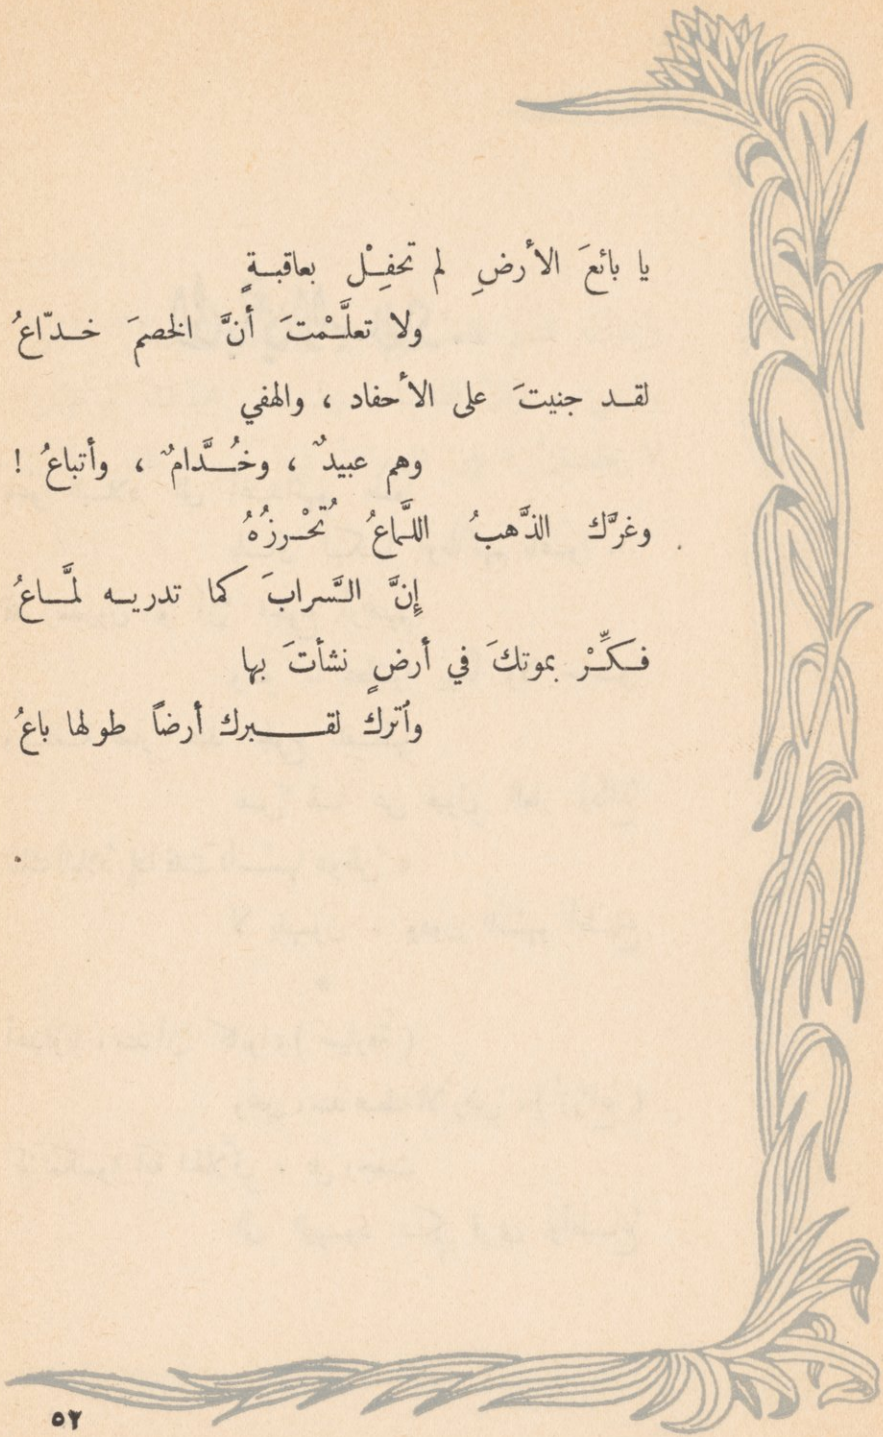 يا بائعَ الأرضِ لم تحفِلْ بعاقبةٍ
ولا تعلَّمْتَ أنَّ الخصمَ خدّاعُ
لقد جنيتَ على الأحفاد ، والهفي
وهم عبيدٌ ، وخُدَّامٌ ، وأتباعُ !
وغرَّك الذَّهبُ اللَّماعُ تُحْرزُهُ
إِنَّ السَّرابَ كما تدريه لمَّاعُ
فكِّرْ بموتكَ في أرضٍ نشأتَ بها
وٱترك لقبرك أرضاً طولها باعُ
٥٢